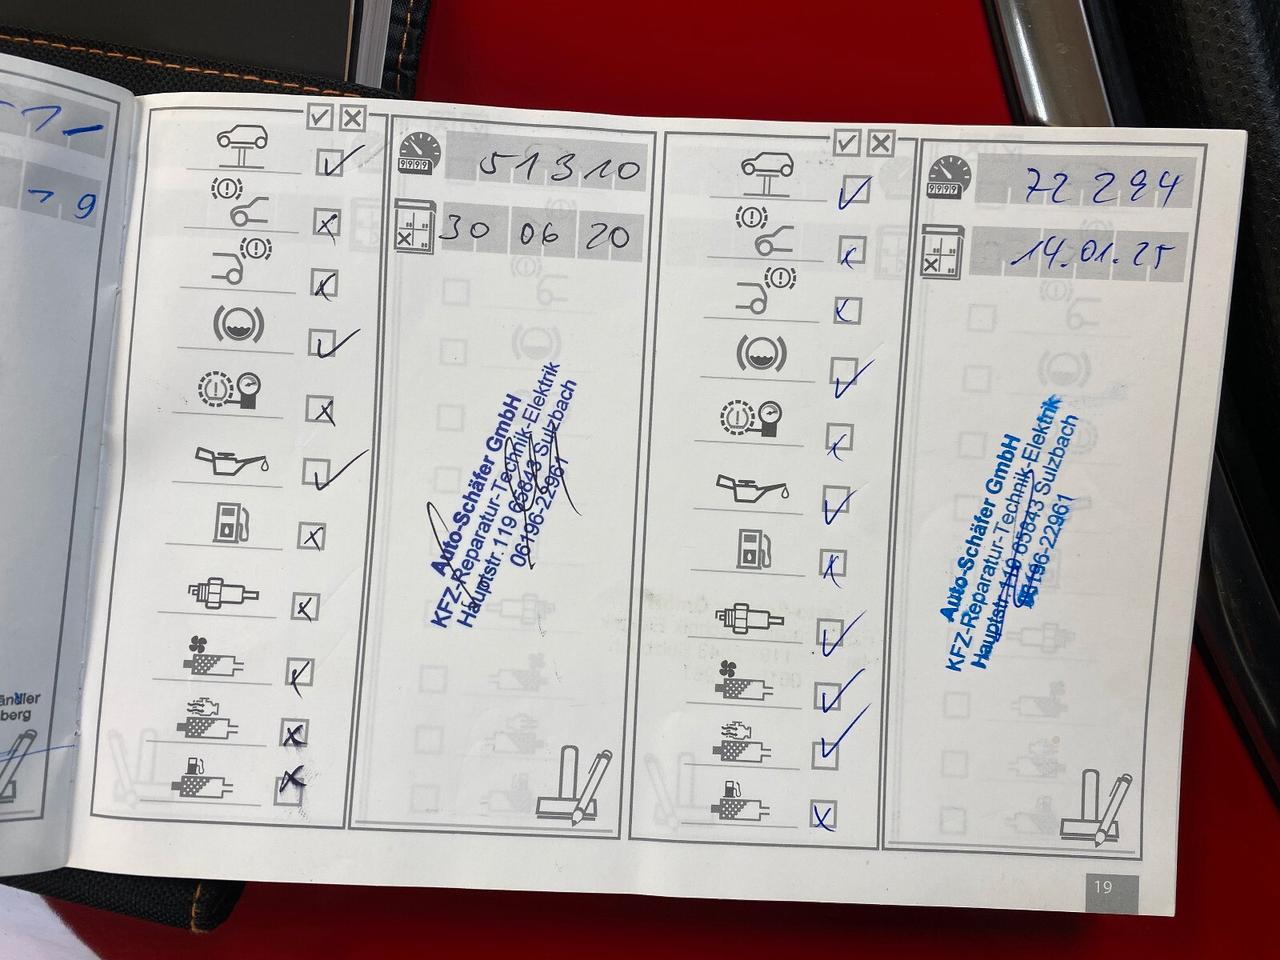 9
ändler
berg
9999
51310
30 06 20
Auto-Schäfer GmbH
KFZ-Reparatur-Technik-Elektrik
Hauptstr. 119 65843 Sulzbach
06196-22961
9999
72 284
14.01.25
Auto-Schäfer GmbH
KFZ-Reparatur-Technik-Elektrik
Hauptstr. 119 65843 Sulzbach
06196-22961
19